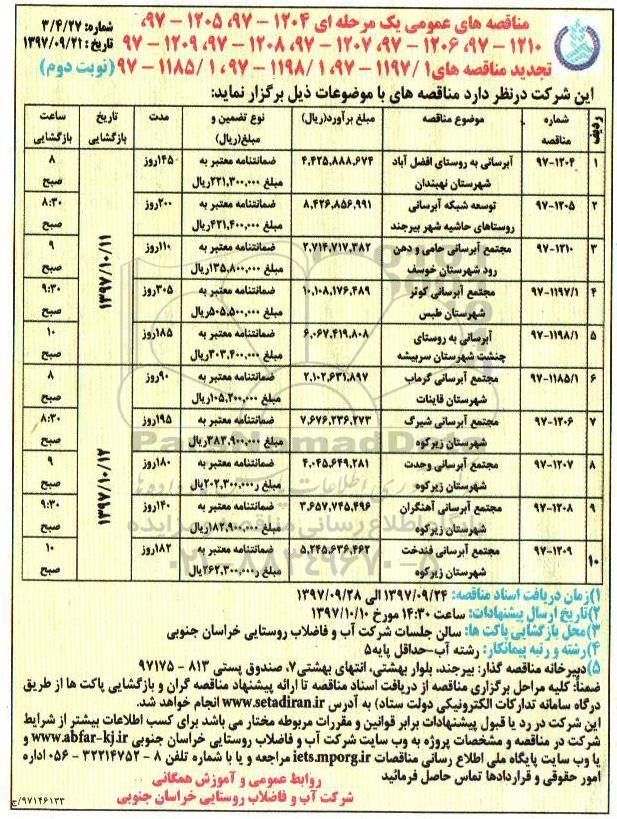 مناقصه های عمومی یک مرحله ای ۱۲۰۴ - ۹۷، ۱۲۰۵ - ۹۷،
۱۲۱۰ - ۹۷، ۱۲۰۶ - ۹۷، ۱۲۰۷ - ۹۷، ۱۲۰۸ - ۹۷، ۱۲۰۹ - ۹۷
تجدید مناقصه های ۱/ ۱۱۹۷ - ۹۷، ۱/ ۱۱۹۸ - ۹۷، ۱/ ۱۱۸۵ - ۹۷ (نوبت دوم)
شماره: ۳/۴/۲۷
تاریخ: ۱۳۹۷/۰۹/۲۱
این شرکت درنظر دارد مناقصه های با موضوعات ذیل برگزار نماید:
ردیف | شماره مناقصه | موضوع مناقصه | مبلغ برآورد(ریال) | نوع تضمین و مبلغ(ریال) | مدت | تاریخ بازگشایی | ساعت بازگشایی
۱ | ۹۷-۱۲۰۴ | آبرسانی به روستای افضل آباد شهرستان نهبندان | ۴,۴۲۵,۸۸۸,۶۷۴ | ضمانتنامه معتبر به مبلغ ۲۲۱,۳۰۰,۰۰۰ریال | ۱۴۵روز | ۱۳۹۷/۱۰/۱۱ | ۸ صبح
۲ | ۹۷-۱۲۰۵ | توسعه شبکه آبرسانی روستاهای حاشیه شهر بیرجند | ۸,۴۲۶,۸۵۶,۹۹۱ | ضمانتنامه معتبر به مبلغ ۴۲۱,۴۰۰,۰۰۰ریال | ۲۰۰روز | ۸:۳۰ صبح
۳ | ۹۷-۱۲۱۰ | مجتمع آبرسانی حامی و دهن رود شهرستان خوسف | ۲,۷۱۴,۷۱۷,۳۸۲ | ضمانتنامه معتبر به مبلغ ۱۳۵,۸۰۰,۰۰۰ریال | ۱۱۰روز | ۹ صبح
۴ | ۹۷-۱۱۹۷/۱ | مجتمع آبرسانی کوثر شهرستان طبس | ۱۰,۱۰۸,۱۷۶,۴۸۹ | ضمانتنامه معتبر به مبلغ ۵۰۵,۵۰۰,۰۰۰ریال | ۳۰۵روز | ۹:۳۰ صبح
۵ | ۹۷-۱۱۹۸/۱ | آبرسانی به روستای چنشت شهرستان سربیشه | ۶,۰۶۷,۴۱۹,۸۰۸ | ضمانتنامه معتبر به مبلغ ۳۰۳,۴۰۰,۰۰۰ریال | ۱۸۵روز | ۱۰ صبح
۶ | ۹۷-۱۱۸۵/۱ | مجتمع آبرسانی گرماب شهرستان قاینات | ۲,۱۰۲,۶۳۱,۸۹۷ | ضمانتنامه معتبر به مبلغ ۱۰۵,۲۰۰,۰۰۰ریال | ۹۰روز | ۱۳۹۷/۱۰/۱۲ | ۸ صبح
۷ | ۹۷-۱۲۰۶ | مجتمع آبرسانی شیرگ شهرستان زیرکوه | ۷,۶۷۶,۲۳۶,۲۷۳ | ضمانتنامه معتبر به مبلغ ۳۸۳,۹۰۰,۰۰۰ریال | ۱۹۵روز | ۸:۳۰ صبح
۸ | ۹۷-۱۲۰۷ | مجتمع آبرسانی وحدت شهرستان زیرکوه | ۴,۰۴۵,۶۴۹,۲۸۱ | ضمانتنامه معتبر به مبلغ ۲۰۲,۳۰۰,۰۰۰ریال | ۱۸۰روز | ۹ صبح
۹ | ۹۷-۱۲۰۸ | مجتمع آبرسانی آهنگران شهرستان زیرکوه | ۳,۶۵۷,۷۴۵,۴۹۶ | ضمانتنامه معتبر به مبلغ ۱۸۲,۹۰۰,۰۰۰ریال | ۱۴۰روز | ۹:۳۰ صبح
۱۰ | ۹۷-۱۲۰۹ | مجتمع آبرسانی فندخت شهرستان زیرکوه | ۵,۲۴۵,۶۳۶,۴۶۲ | ضمانتنامه معتبر به مبلغ ۲۶۲,۳۰۰,۰۰۰ریال | ۱۸۲روز | ۱۰ صبح
۱)زمان دریافت اسناد مناقصه: ۱۳۹۷/۰۹/۲۴ الی ۱۳۹۷/۰۹/۲۸
۲)تاریخ ارسال پیشنهادات: ساعت ۱۴:۳۰ مورخ ۱۳۹۷/۱۰/۱۰
۳)محل بازگشایی پاکت ها: سالن جلسات شرکت آب و فاضلاب روستایی خراسان جنوبی
۴)رشته و رتبه پیمانکار: رشته آب-حداقل پایه۵
۵)دبیرخانه مناقصه گذار: بیرجند، بلوار بهشتی، انتهای بهشتی۷، صندوق پستی ۸۱۳ - ۹۷۱۷۵
ضمناً: کلیه مراحل برگزاری مناقصه از دریافت اسناد مناقصه تا ارائه پیشنهاد مناقصه گران و بازگشایی پاکت ها از طریق
درگاه سامانه تدارکات الکترونیکی دولت ستاد) به آدرس www.setadiran.ir انجام خواهد شد.
این شرکت در رد یا قبول پیشنهادات برابر قوانین و مقررات مربوطه مختار می باشد برای کسب اطلاعات بیشتر از شرایط
شرکت در مناقصه و مشخصات پروژه به وب سایت شرکت آب و فاضلاب روستایی خراسان جنوبی www.abfar-kj.ir و
یا وب سایت پایگاه ملی اطلاع رسانی مناقصات iets.mporg.ir مراجعه و یا با شماره تلفن ۸ - ۳۲۲۱۴۷۵۲ - ۰۵۶ اداره
امور حقوقی و قراردادها تماس حاصل فرمائید
روابط عمومی و آموزش همگانی
شرکت آب و فاضلاب روستایی خراسان جنوبی
۹۷۱۴۶۱۳۳/ج